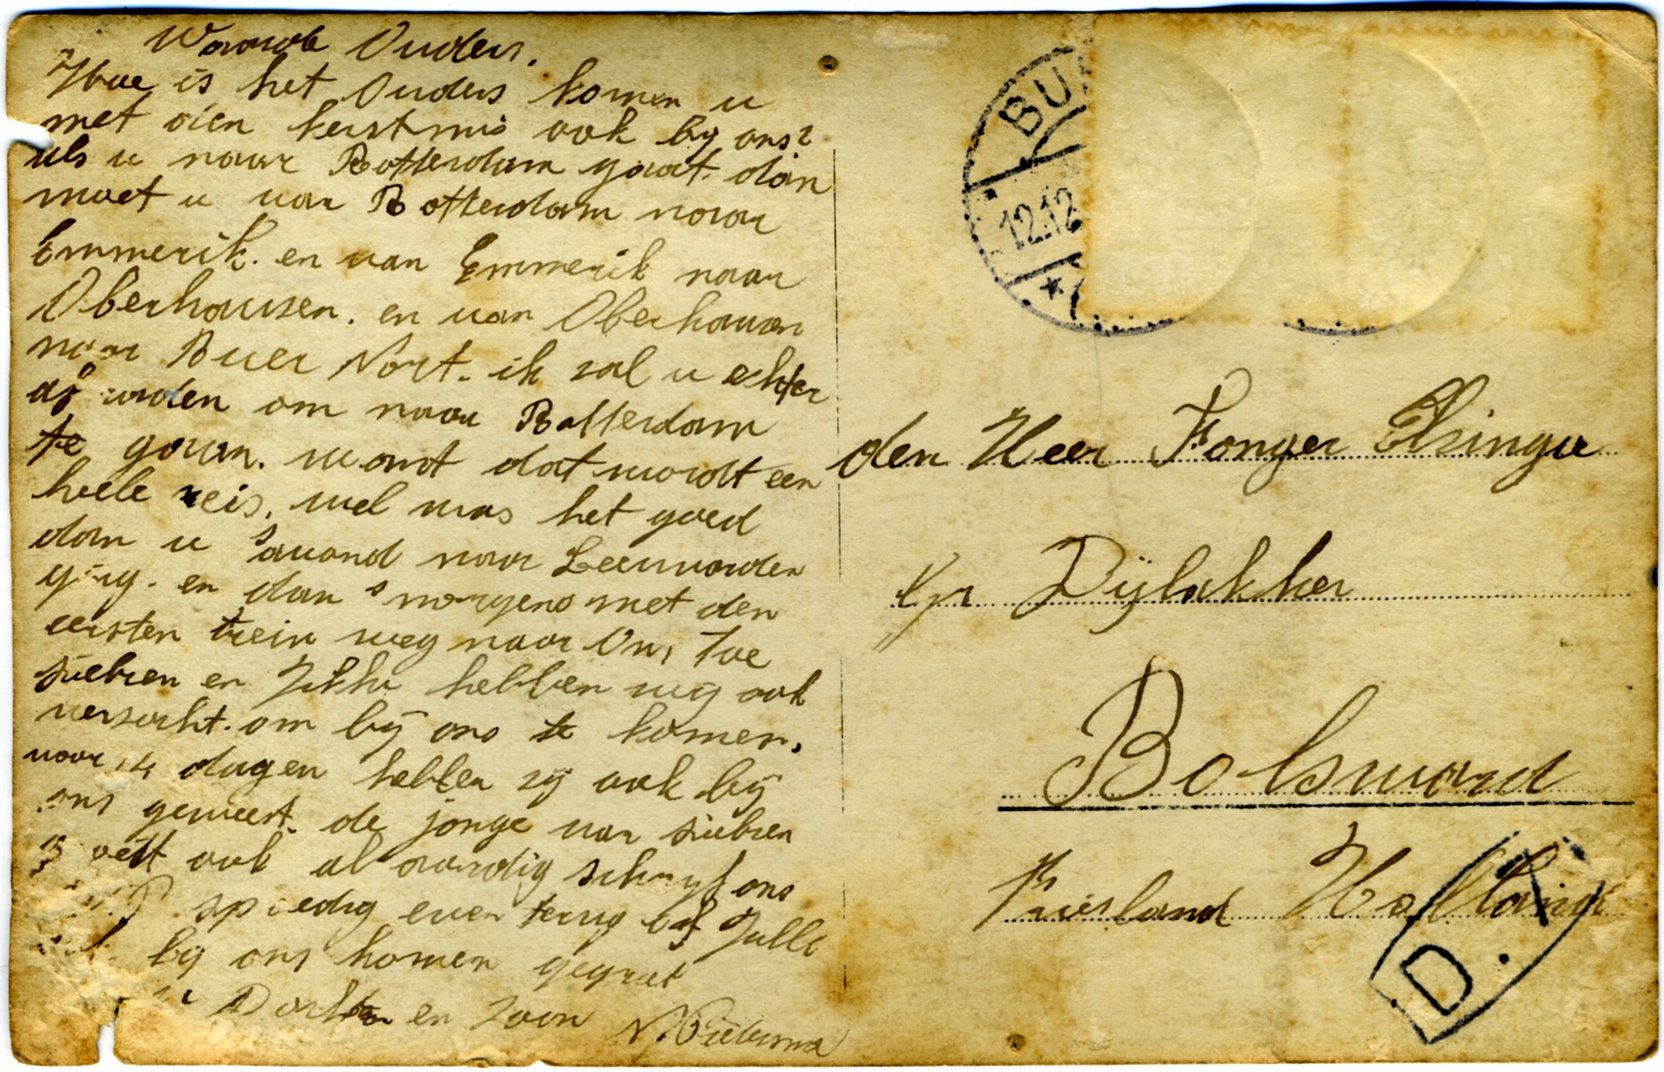 Waarde Ouders.
Hoe is het Ouders komen u
met dien kerstmis ook by ons?
als u naar Rotterdam gaat. dan
moet u van Rotterdam naar
Emmerik. en van Emmerik naar
Oberhausen. en van Oberhausen
naar Buer Nort. ik zal u echter
af raden om naar Rotterdam
te gaan. want dat wordt een
heele reis. wel was het goed
dan u s avond naar Leeuwarden
ging. en dan s morgens met den
eersten trein weg naar Ons Toe
siebren en hebben wij ook
versocht. om bij ons te komen.
voor 14 dagen hebben zij ook bij
ons geweest. de jonge van siebren
ook al aardig schryf ons
spoedig even terug of Julle
by ons komen gegroet
Dochter en Zoon
N. Wiebesma
BU
12.12
den Heer Fonger
Dijlakker
Bolsward
Friesland Holland
D.